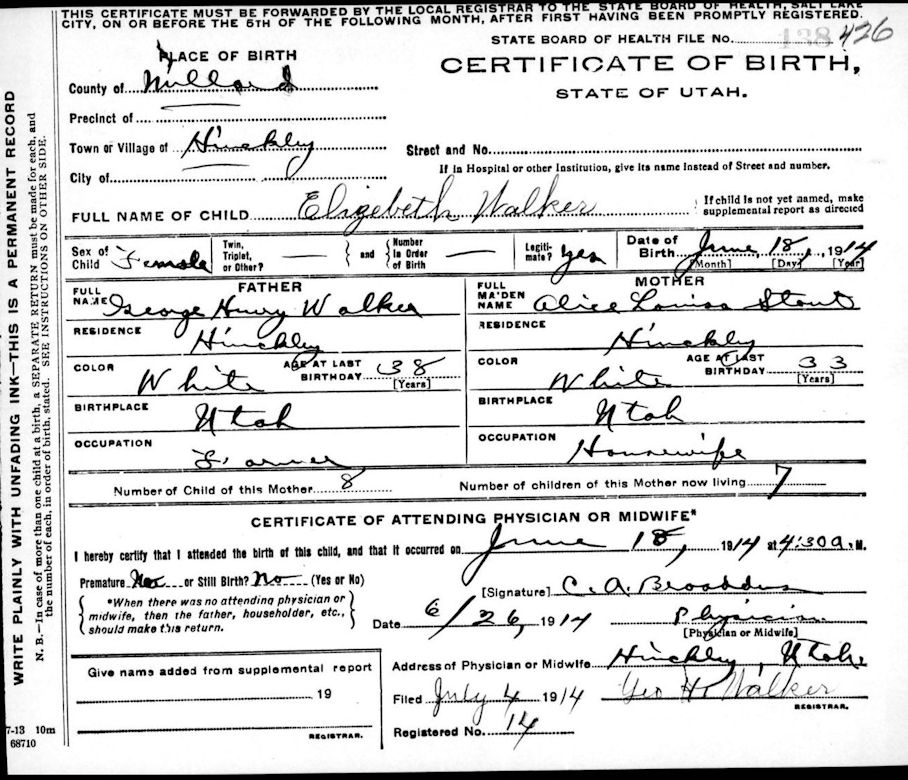 THIS CERTIFICATE MUST BE FORWARDED BY THE LOCAL REGISTRAR TO THE STATE BOARD OF HEALTH, SALT LAKE
CITY, ON OR BEFORE THE 5TH OF THE FOLLOWING MONTH, AFTER FIRST HAVING BEEN PROMPTLY REGISTERED.
STATE BOARD OF HEALTH FILE NO. 138 426
PLACE OF BIRTH
CERTIFICATE OF BIRTH,
STATE OF UTAH.
County of Millard
Precinct of
Town or Village of Hinckley
Street and No.
If in Hospital or other Institution, give its name instead of Street and number.
City of
FULL NAME OF CHILD Elizebeth Walker
If child is not yet named, make
supplemental report as directed
Sex of Child Female
Twin, Triplet, or Other? — and Number in Order of Birth —
Legiti-mate? Yes
Date of Birth June 18, 1914
[Month] [Day] [Year]
FATHER
FULL NAME George Henry Walker
RESIDENCE
Hinckley
COLOR White
AGE AT LAST BIRTHDAY 38
[Years]
BIRTHPLACE
Utah
OCCUPATION
Farmer
MOTHER
FULL MAIDEN NAME Alice Louisa Stout
RESIDENCE
Hinckley
COLOR White
AGE AT LAST BIRTHDAY 33
[Years]
BIRTHPLACE
Utah
OCCUPATION
Housewife
Number of Child of this Mother 8
Number of children of this Mother now living 7
CERTIFICATE OF ATTENDING PHYSICIAN OR MIDWIFE*
I hereby certify that I attended the birth of this child, and that it occurred on June 18, 1914 at 4:30 a. M.
Premature No or Still Birth? No (Yes or No)
[Signature] C. A. Broaddus
*When there was no attending physician or
midwife, then the father, householder, etc.,
should make this return.
Date 6/26, 1914
Physician
[Physician or Midwife]
Address of Physician or Midwife Hinckley, Utah
Give name added from supplemental report
19
REGISTRAR.
Filed July 4 1914 Geo H Walker
REGISTRAR.
Registered No. 14
WRITE PLAINLY WITH UNFADING INK—THIS IS A PERMANENT RECORD
N. B.—In case of more than one child at a birth, a SEPARATE RETURN must be made for each, and
the number of each, in order of birth, stated. SEE INSTRUCTIONS ON OTHER SIDE.
7-13 10m
68710